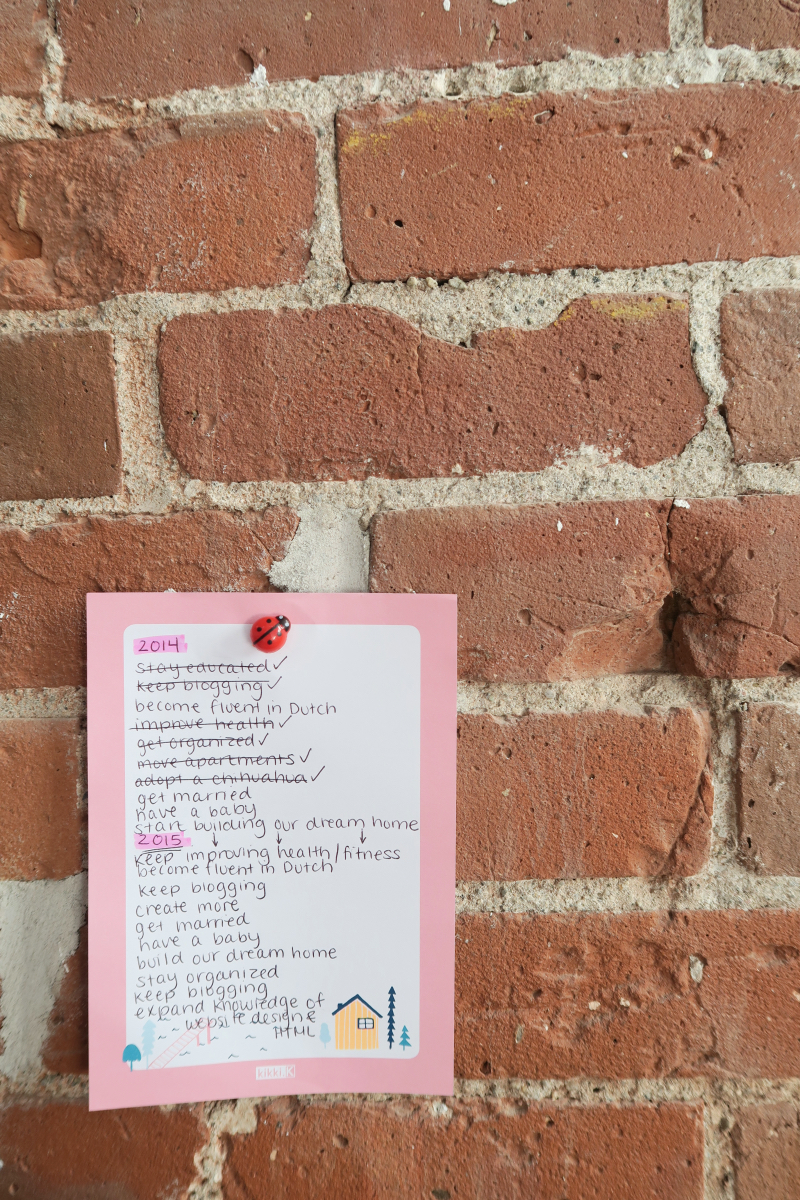 2014
stay educated ✓
keep blogging ✓
become fluent in Dutch
improve health ✓
get organized ✓
move apartments ✓
adopt a chihuahua ✓
get married
have a baby
start building our dream home
2015 ↓ ↓ ↓
keep improving health/fitness
become fluent in Dutch
keep blogging
create more
get married
have a baby
build our dream home
stay organized
keep blogging
expand knowledge of
website design &
HTML
kikki.K